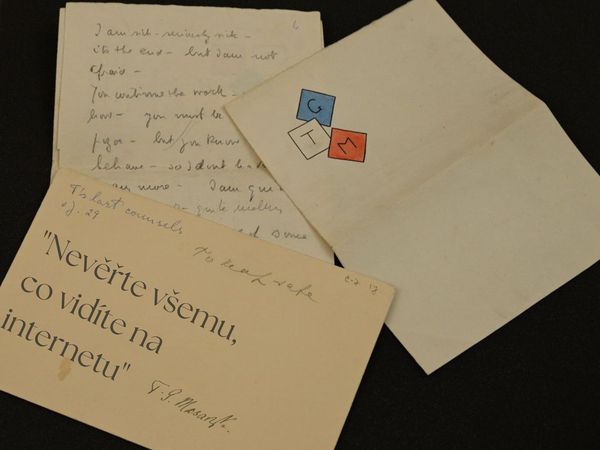 6
I am sick - seriously sick -
its the end - but I am not
afraid -
You continue the work -
how - you must be
but you know
behave - so I dont
any more - I am
quite
some
G
T M
T's last counsels
29
to keep safe
"Nevěřte všemu,
co vidíte na
internetu"
T. G. Masaryk.